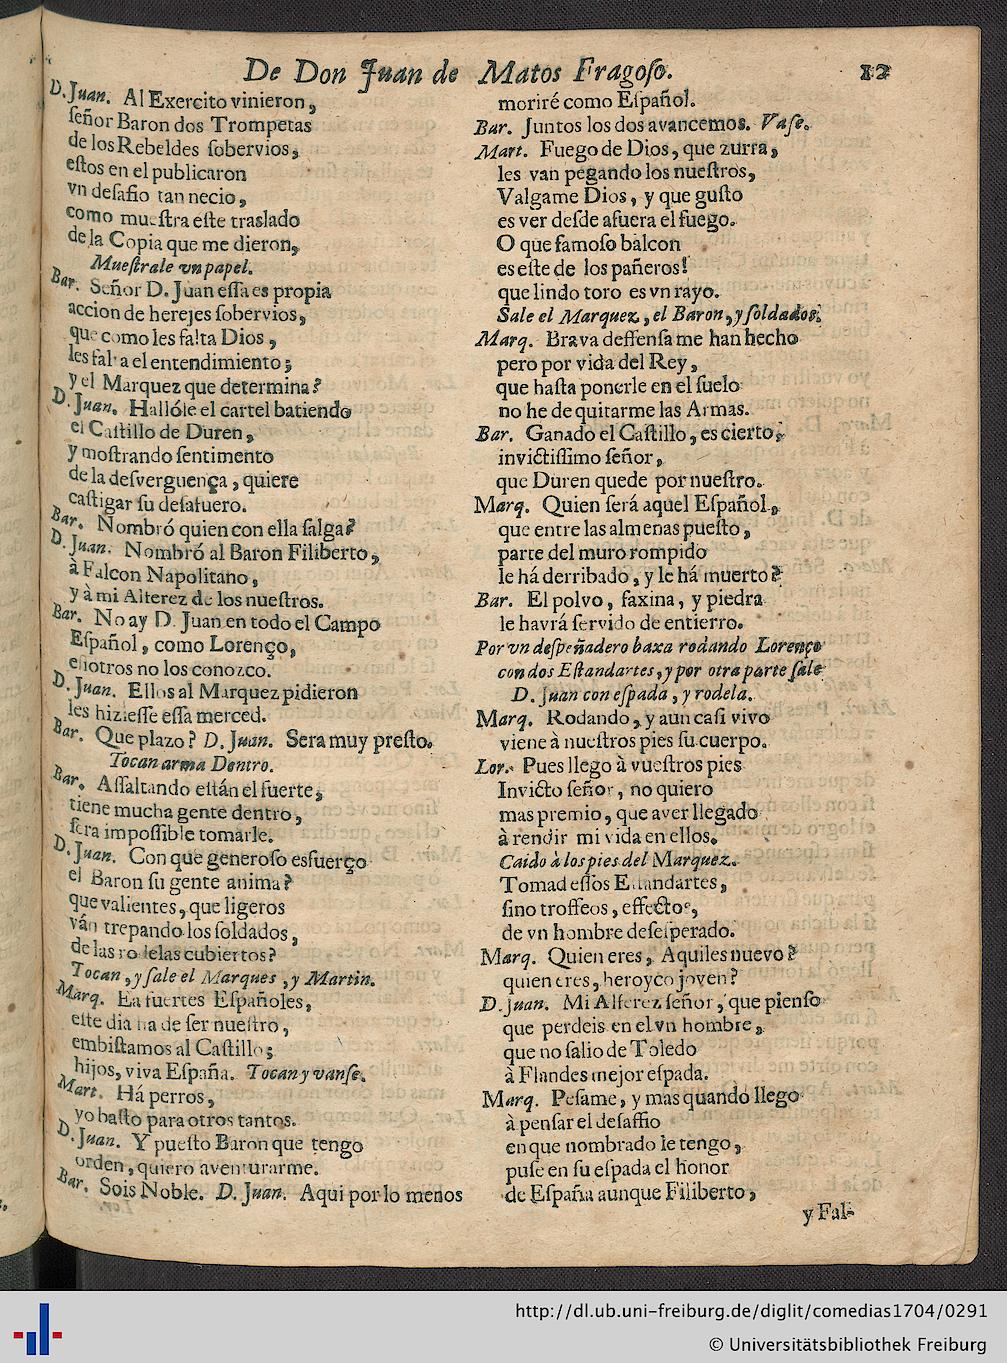 De Don Juan de Matos Fragoſo.
12
D. Juan. Al Exercito vinieron,
ſeñor Baron dos Trompetas
de los Rebeldes ſobervios,
eſtos en el publicaron
vn deſafio tan necio,
como mueſtra eſte traslado
de la Copia que me dieron,
Mueſtrale vn papel.
Bar. Señor D. Juan eſſa es propia
accion de herejes ſobervios,
que como les falta Dios,
les falta el entendimiento;
y el Marquez que determina?
D. Juan. Hallóle el cartel batiendo
el Caſtillo de Duren,
y moſtrando ſentimento
de la desverguença, quiere
caſtigar ſu deſafuero.
Bar. Nombró quien con ella ſalga?
D. Juan. Nombró al Baron Filiberto,
à Falcon Napolitano,
y à mi Alferez de los nueſtros.
Bar. No ay D. Juan en todo el Campo
Eſpañol, como Lorenço,
eſſotros no los conozco.
D. Juan. Ellos al Marquez pidieron
les hizieſſe eſſa merced.
Bar. Que plazo? D. Juan. Sera muy preſto.
Tocan arma Dentro.
Bar. Aſſaltando eſtán el fuerte,
tiene mucha gente dentro,
ſera impoſſible tomarle.
D. Juan. Con que generoſo esfuerço
el Baron ſu gente anima?
que valientes, que ligeros
ván trepando los ſoldados,
de las rodelas cubiertos?
Tocan, y ſale el Marques, y Martin.
Marq. Ea fuertes Eſpañoles,
eſte dia ha de ſer nueſtro,
embiſtamos al Caſtillo;
hijos, viva Eſpaña. Tocan y vanſe.
Mart. Há perros,
yo baſto para otros tantos.
D. Juan. Y pueſto Baron que tengo
orden, quiero aventurarme.
Bar. Sois Noble. D. Juan. Aqui por lo menos
moriré como Eſpañol.
Bar. Juntos los dos avancemos. Vaſe.
Mart. Fuego de Dios, que zurra,
les van pegando los nueſtros,
Valgame Dios, y que guſto
es ver deſde afuera el fuego.
O que famoſo balcon
es eſte de los pañeros!
que lindo toro es vn rayo.
Sale el Marquez, el Baron, y ſoldados.
Marq. Brava deffenſa me han hecho
pero por vida del Rey,
que haſta ponerle en el ſuelo
no he de quitarme las Armas.
Bar. Ganado el Caſtillo, es cierto,
invictiſſimo ſeñor,
que Duren quede por nueſtro.
Marq. Quien ſerá aquel Eſpañol,
que entre las almenas pueſto,
parte del muro rompido
le há derribado, y le há muerto?
Bar. El polvo, faxina, y piedra
le havrá ſervido de entierro.
Por vn deſpeñadero baxa rodando Lorenço
con dos Eſtandartes, y por otra parte ſale
D. Juan con eſpada, y rodela.
Marq. Rodando, y aun caſi vivo
viene à nueſtros pies ſu cuerpo.
Lor. Pues llego à vueſtros pies
Invicto ſeñor, no quiero
mas premio, que aver llegado
à rendir mi vida en ellos.
Caido à los pies del Marquez.
Tomad eſſos Eſtandartes,
ſino troffeos, effectos,
de vn hombre deſeſperado.
Marq. Quien eres, Aquiles nuevo?
quien eres, heroyco joven?
D. Juan. Mi Alferez ſeñor, que pienſo
que perdeis en el vn hombre,
que no ſalio de Toledo
à Flandes mejor eſpada.
Marq. Peſame, y mas quando llego
à penſar el deſaffio
en que nombrado le tengo,
puſe en ſu eſpada el honor
de Eſpaña aunque Filiberto,
y Fal-
http://dl.ub.uni-freiburg.de/diglit/comedias1704/0291
© Universitätsbibliothek Freiburg